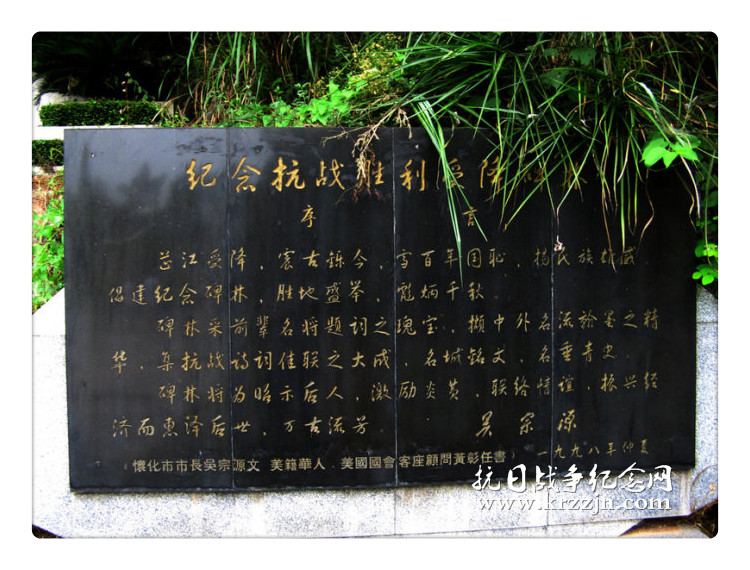 纪念抗战胜利受降碑林
序言
芷江受降，震古铄今，雪百年国耻，扬民族雄威。
倡建纪念碑林，胜地盛举，彪炳千秋。
碑林采前辈名将题词之瑰宝，撷中外名流於墨之精
华，集抗战诗词佳联之大成，名城铭文，名垂青史。
碑林将为昭示后人，激励炎黄，联络情谊，振兴经
济而惠泽后世，万古流芳。 吴宗源
（懷化市市長吴宗源文 美籍華人、美國國會客座顧問黃彰任書） 一九九八年仲夏
抗日战争纪念网
www.krzzjn.com